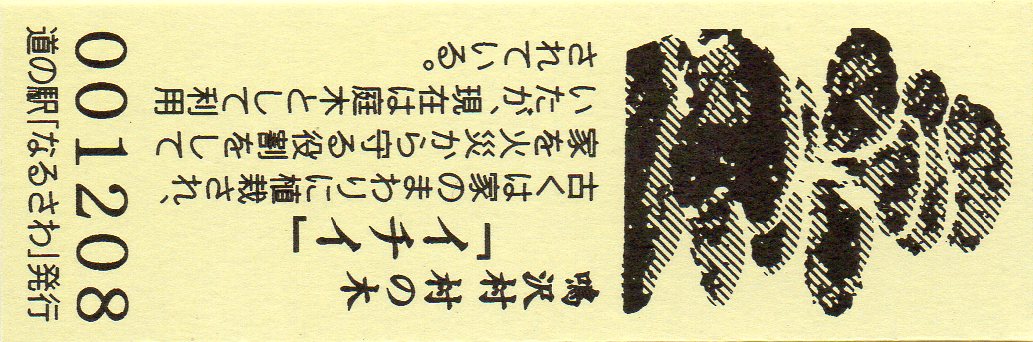 鳴沢村 村の木
「イチイ」
古くは家のまわりに植栽され、
家を火災から守る役割をして
いたが、現在は庭木として利用
されている。
001208
道の駅「なるさわ」発行